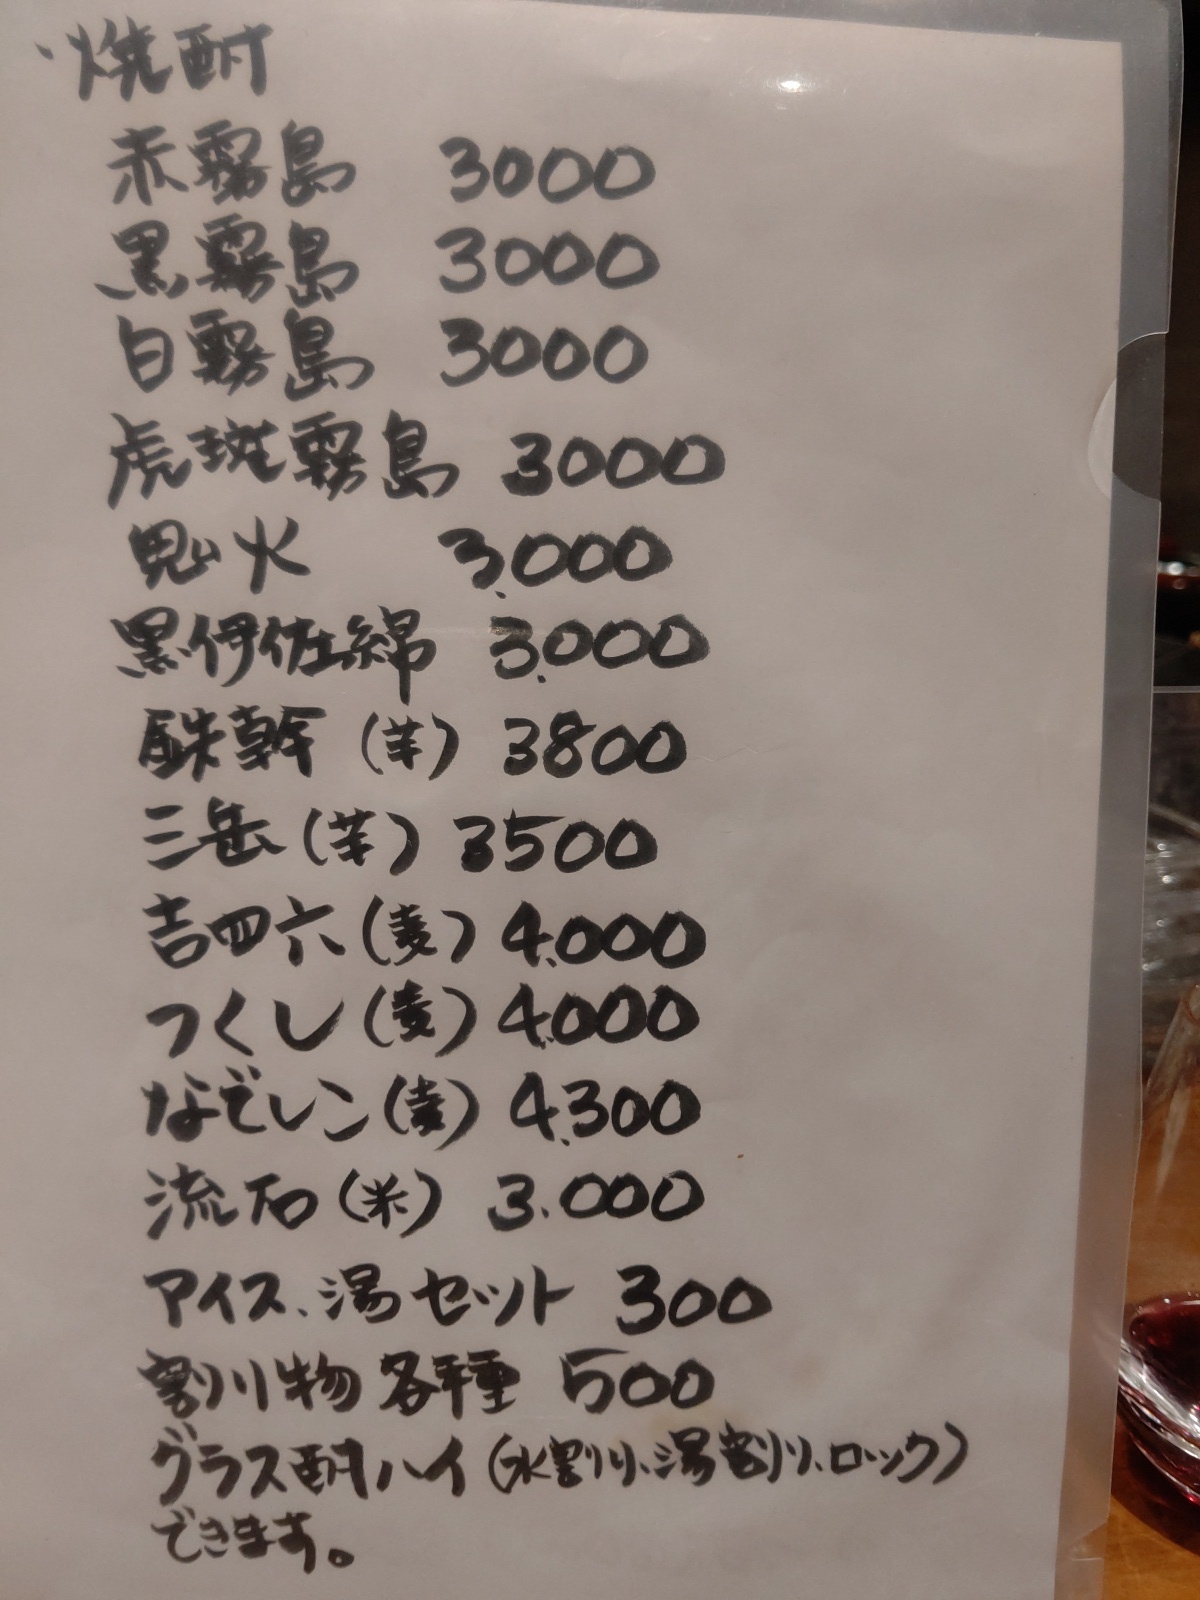 ・焼酎
赤霧島 3000
黒霧島 3000
白霧島 3000
虎斑霧島 3000
鬼火 3,000
黒伊佐綿 3,000
鉄幹(芋) 3800
三岳(芋) 3500
吉四六(麦) 4,000
つくし(麦) 4,000
なぞレン(麦) 4,300
流石(米) 3.000
アイス、湯セット 300
割り物各種 500
グラス酎ハイ(水割り、湯割り、ロック)
できます。